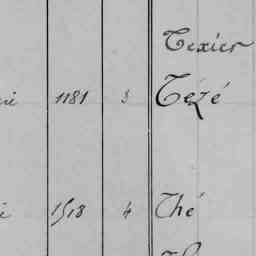 Texier
1181 3 Tézé
1518 4 Thé